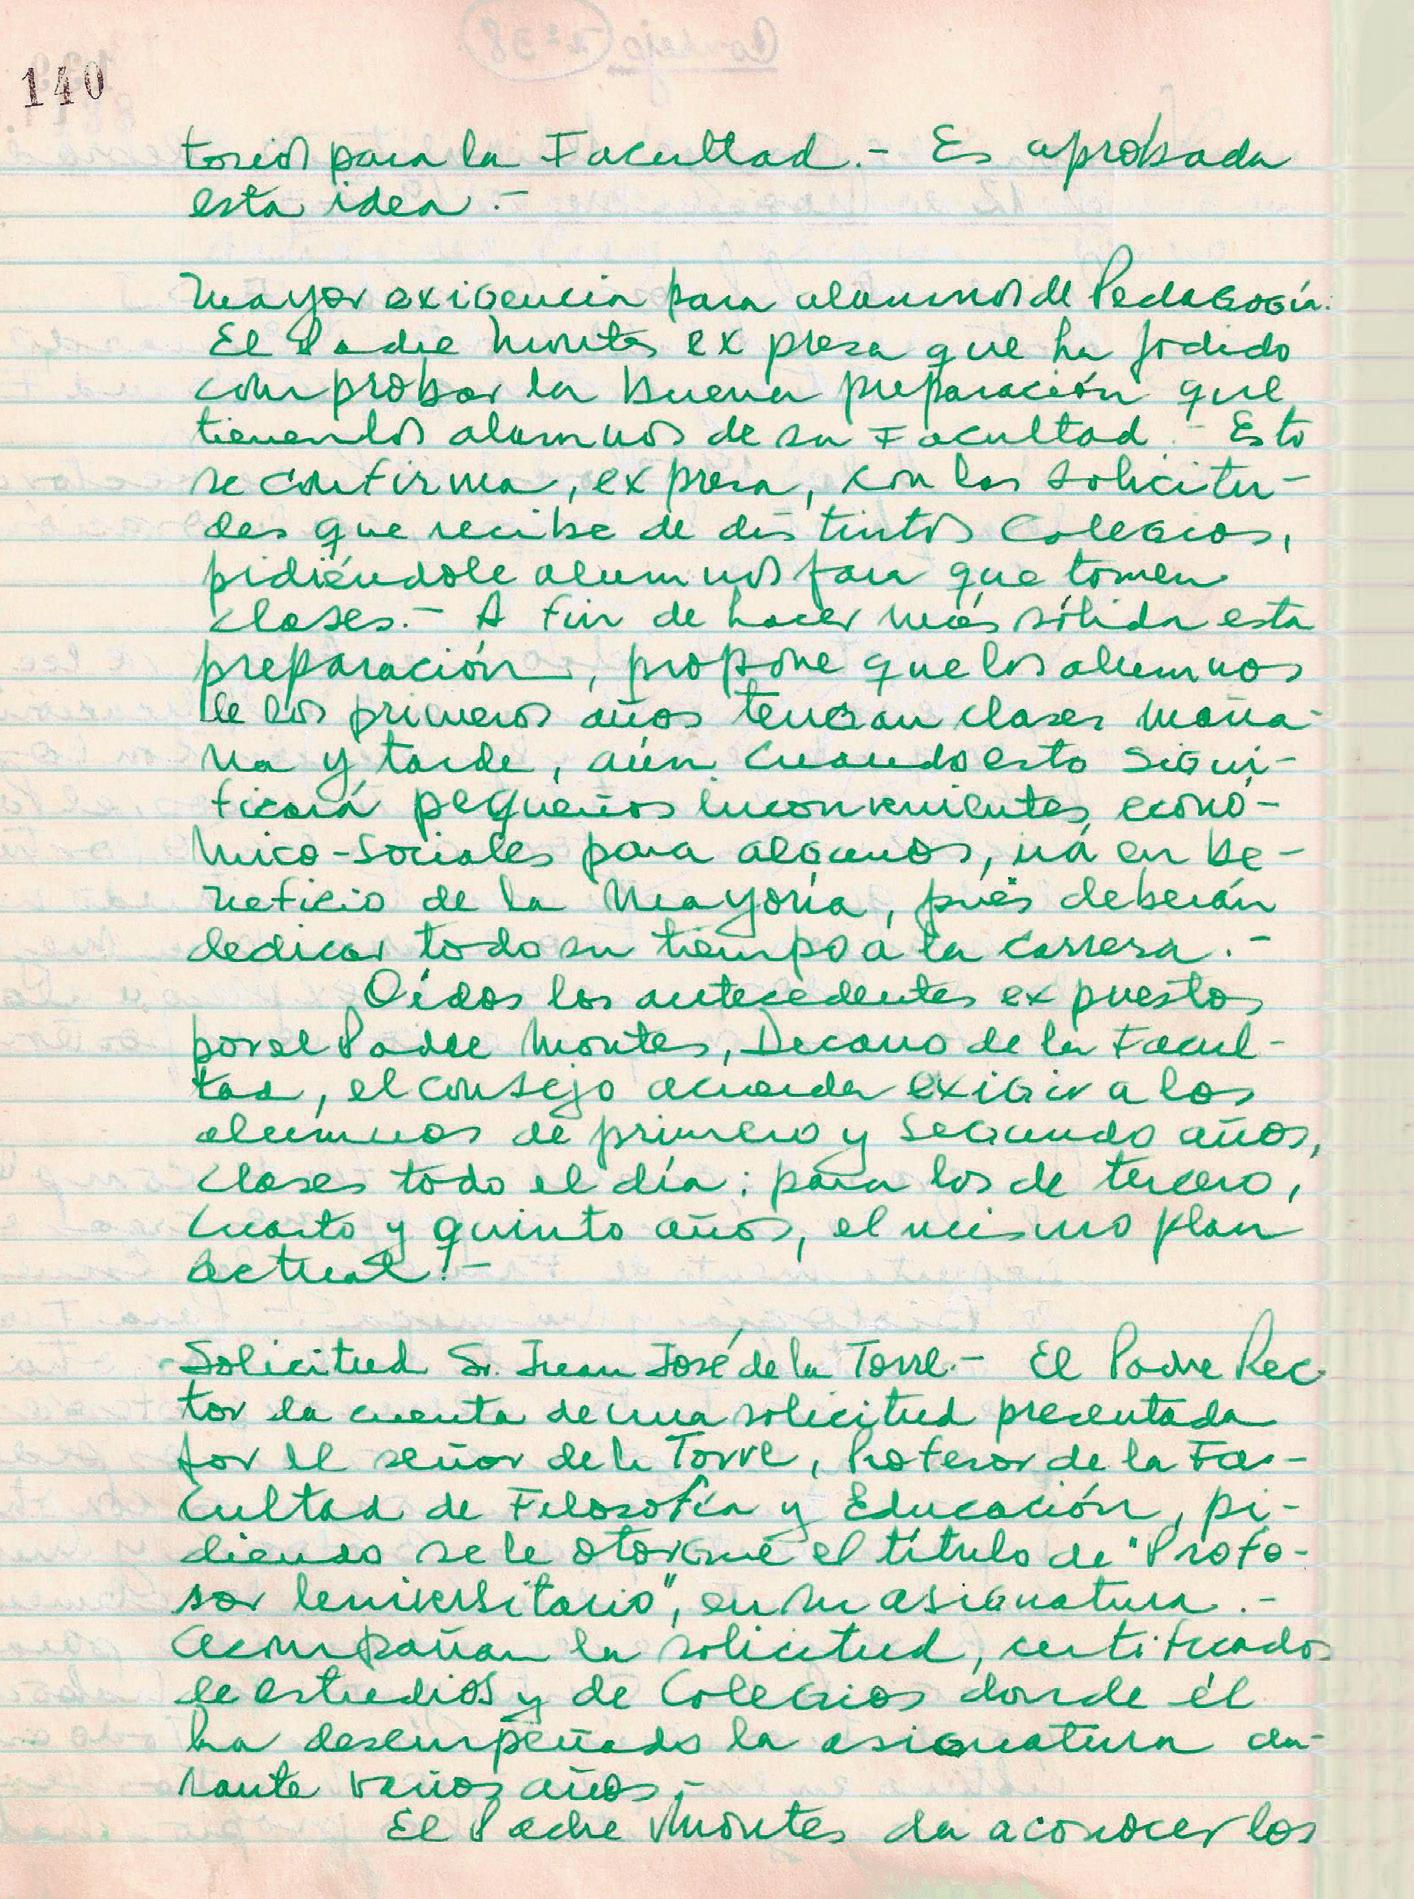 140
torios para la Facultad.- Es aprobada
esta idea.-
Mayor exigencia para alumnos de Pedagogía.
El Padre Montes expresa que ha podido
comprobar la buena preparación que
tienen los alumnos de su Facultad.- Esto
se confirma, expresa, con las solicitu-
des que recibe de distintos Colegios,
pidiéndole alumnos para que tomen
clases.- A fin de hacer más sólida esta
preparación, propone que los alumnos
de los primeros años tengan clases maña-
na y tarde, aún cuando esto signi-
ficará pequeños inconvenientes econó-
mico-sociales para algunos, irá en be-
neficio de la mayoría, pués deberán
dedicar todo su tiempo a la carrera.-
Oídos los antecedentes expuestos
por el Padre Montes, Decano de la Facul-
tad, el consejo acuerda exigir a los
alumnos de primero y segundo años,
clases todo el día; para los de tercero,
cuarto y quinto años, el mismo plan
actual.-
Solicitud Sr. Juan José de la Torre.- El Padre Rec-
tor da cuenta de una solicitud presentada
por el señor de la Torre, Profesor de la Fa-
cultad de Filosofía y Educación, pi-
diendo se le otorgue el título de "Profe-
sor Universitario", en su asignatura.-
Acompañan la solicitud, certificados
de estudios y de Colegios donde él
ha desempeñado la asignatura du-
rante varios años.-
El Padre Montes da a conocer los